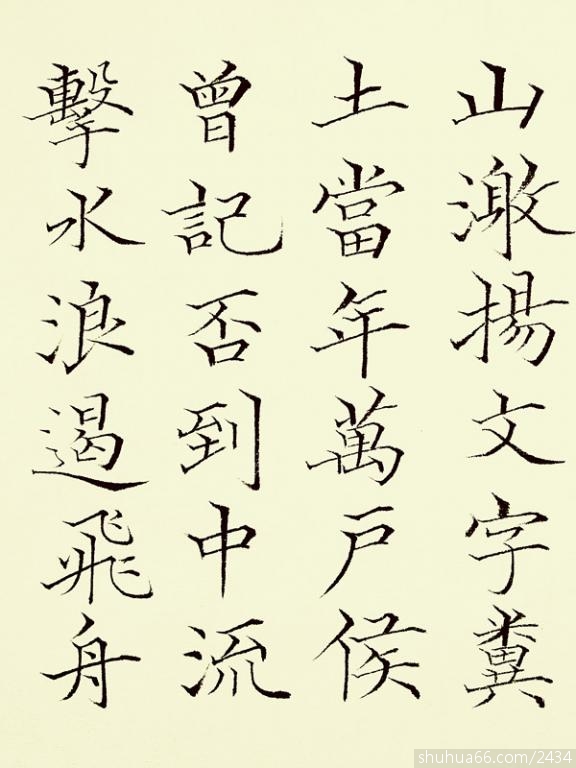 山激揚文字糞
土當年萬戶侯
曾記否到中流
擊水浪遏飛舟
shuhua66.com/2434